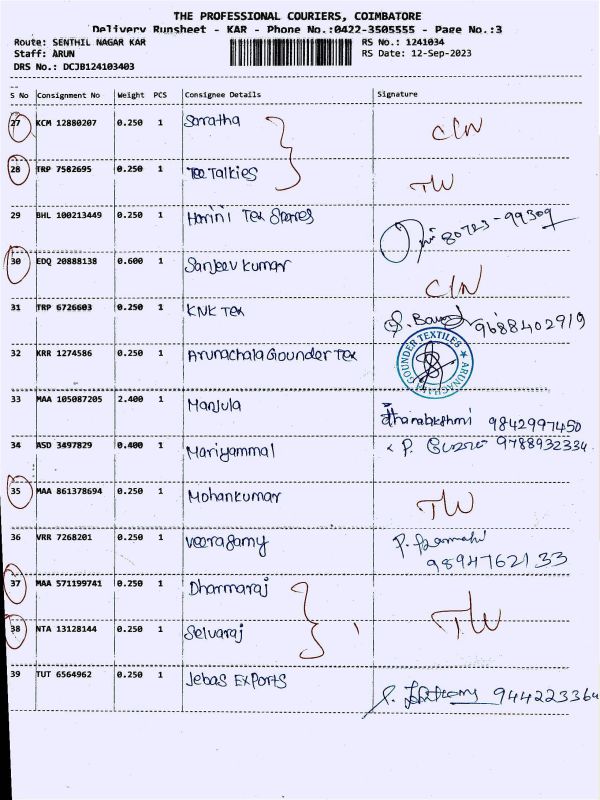 THE PROFESSIONAL COURIERS, COIMBATORE
Delivery Runsheet - KAR - Phone No.:0422-3505555 - Page No.:3
Route: SENTHIL NAGAR KAR RS No.: 1241034
Staff: ARUN RS Date: 12-Sep-2023
DRS No.: DCJB124103403
S No Consignment No Weight PCS Consignee Details Signature
27 KCM 12880207 0.250 1 Saratha CIN
28 TRP 7582695 0.250 1 Tee Talkies TW
29 BHL 100213449 0.250 1 Harini Tex Spares
30 EDQ 20888138 0.600 1 Sanjeev kumar CIN
31 TRP 6726603 0.250 1 KNK TEX 9688402919
32 KRR 1274586 0.250 1 Arunachala Gounder Tex
33 MAA 105087205 2.400 1 Manjula 9842997450
34 ASD 3497829 0.400 1 Mariyammal 9788932334
35 MAA 861378694 0.250 1 Mohankumar TW
36 VRR 7268201 0.250 1 veerasamy
9894762133
37 MAA 571199741 0.250 1 Dharmaraj TW
38 NTA 13128144 0.250 1 Selvaraj
39 TUT 6564962 0.250 1 Jebas Exports